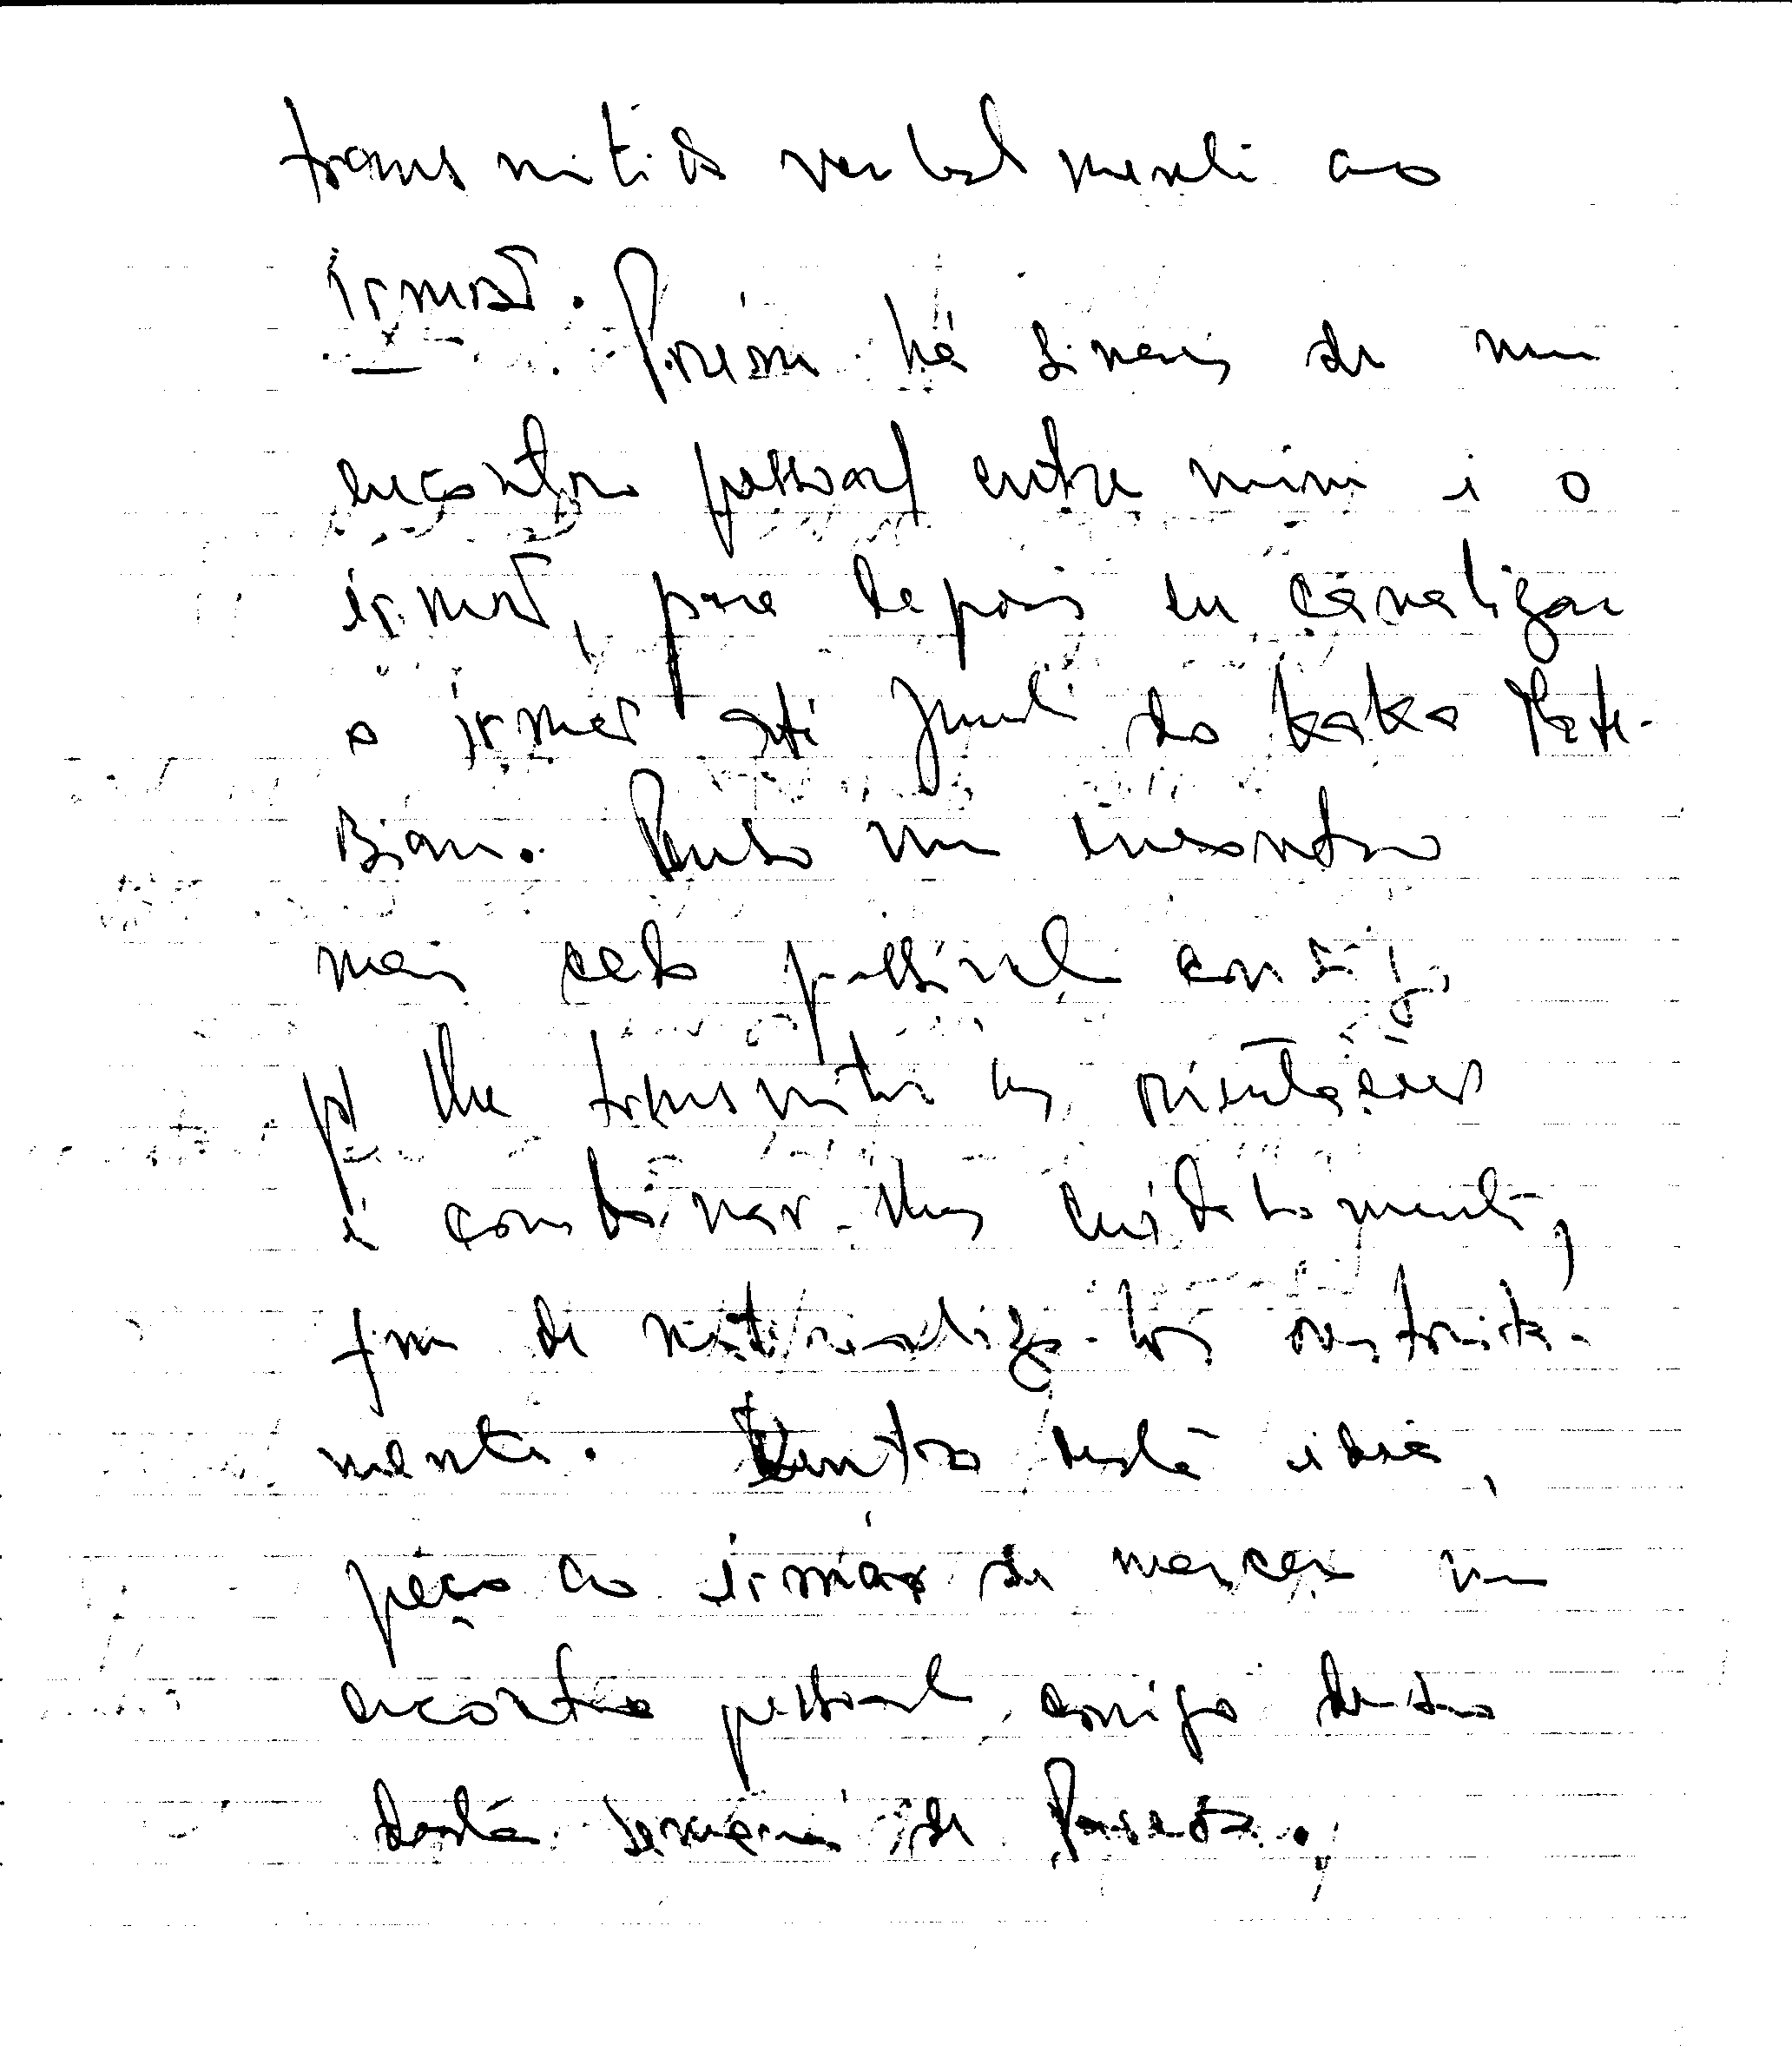 transmitida verbalmente ao
irmão.
Porém há sinais de um
encontro pessoal entre mim e o
irmão, para depois eu canalizar
o irmão até junto do kaka Mate-
Bian. Penso um encontro
mais cedo possível consigo
p/ lhe transmitir as orientações
e combinar-lhes cuidadosamente,
fim de materializa-los
mente. Dentro desta ideia,
peço ao irmão de marcar um
encontro pessoal comigo dentro
desta semana de